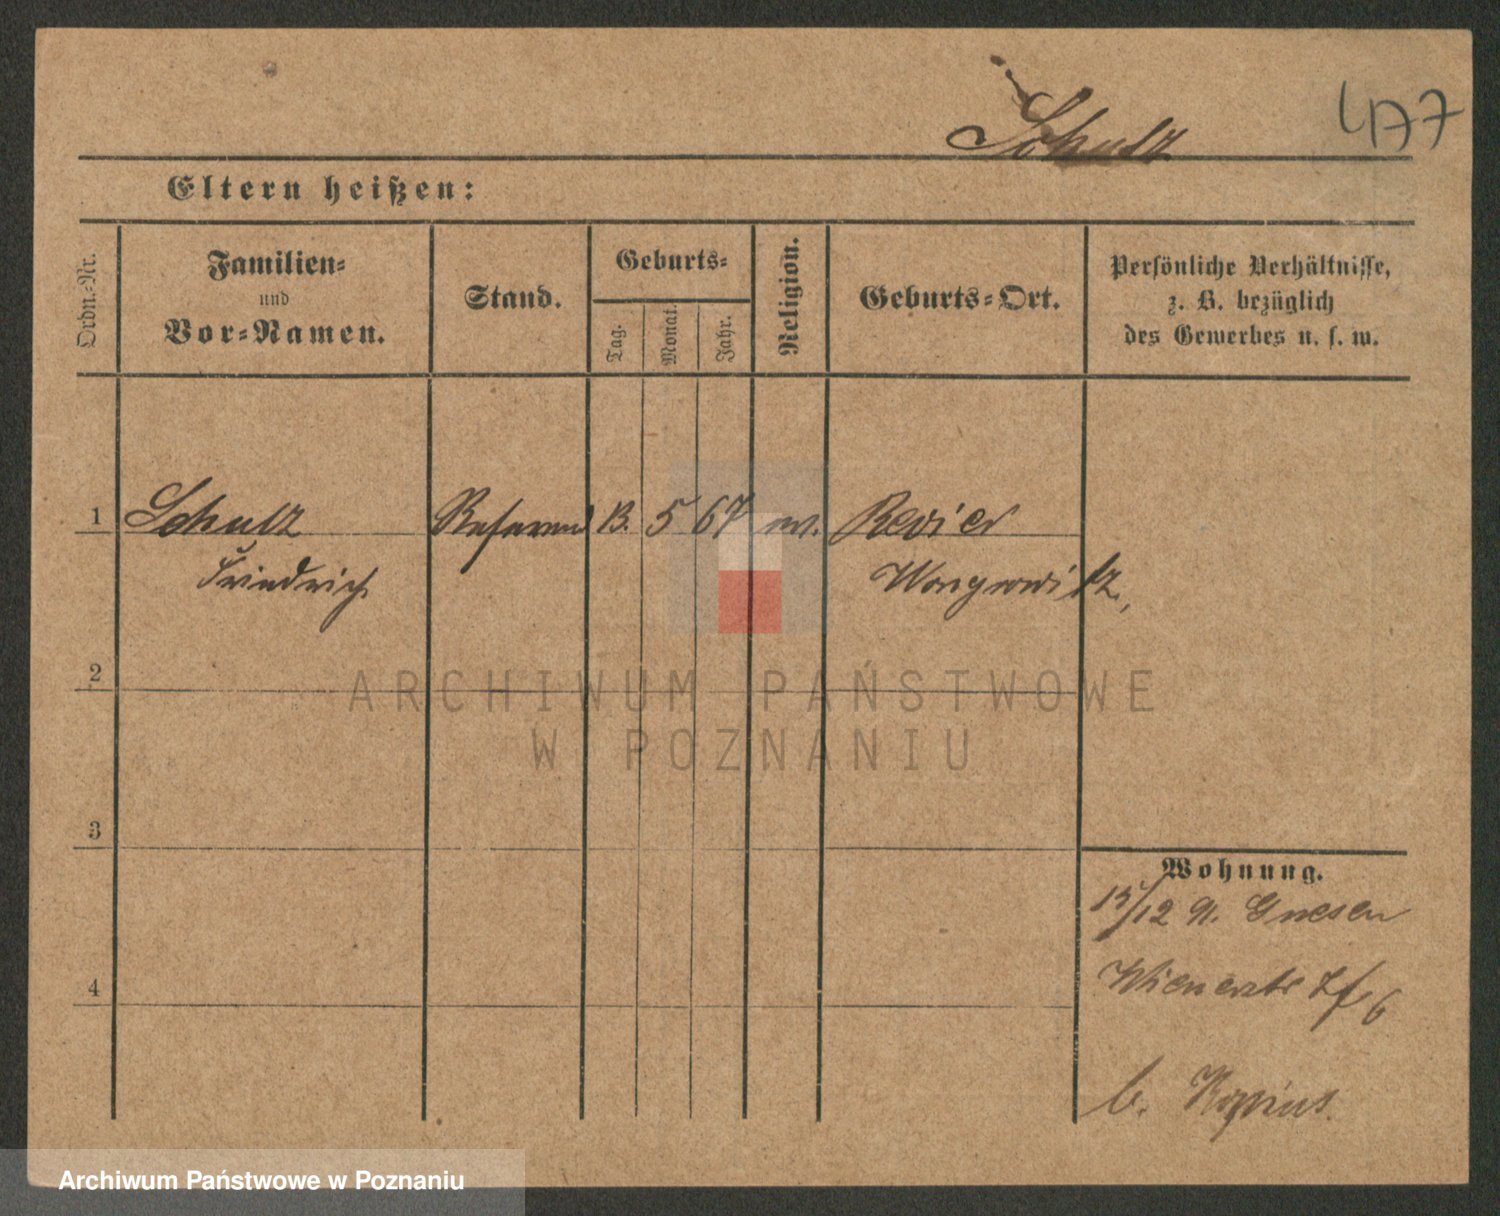 Schulz
477
Eltern heißen:
Ordn.-Nr.
Familien-
und
Vor-Namen.
Stand.
Geburts-
Tag.
Monat.
Jahr.
Religion.
Geburts-Ort.
Persönliche Verhältnisse,
z. B. bezüglich
des Gewerbes u. s. w.
1 Schulz Referend 13. 5 67 ev. Revier
Friedrich Wongrowitz,
2
3
4
Wohnung.
15/12 91. Gnesen
6
b.
ARCHIWUM PAŃSTWOWE
W POZNANIU
Archiwum Państwowe w Poznaniu